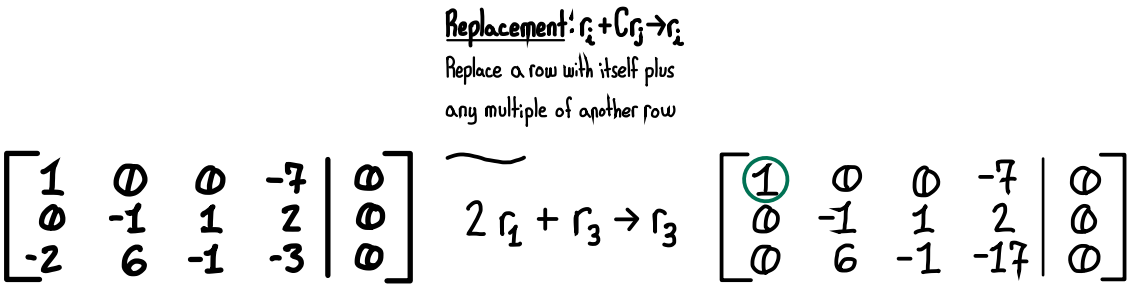 Replacement: rᵢ + Crⱼ → rᵢ
Replace a row with itself plus
any multiple of another row
1 0 0 -7 | 0
0 -1 1 2 | 0
-2 6 -1 -3 | 0
2 r₁ + r₃ → r₃
1 0 0 -7 | 0
0 -1 1 2 | 0
0 6 -1 -17 | 0